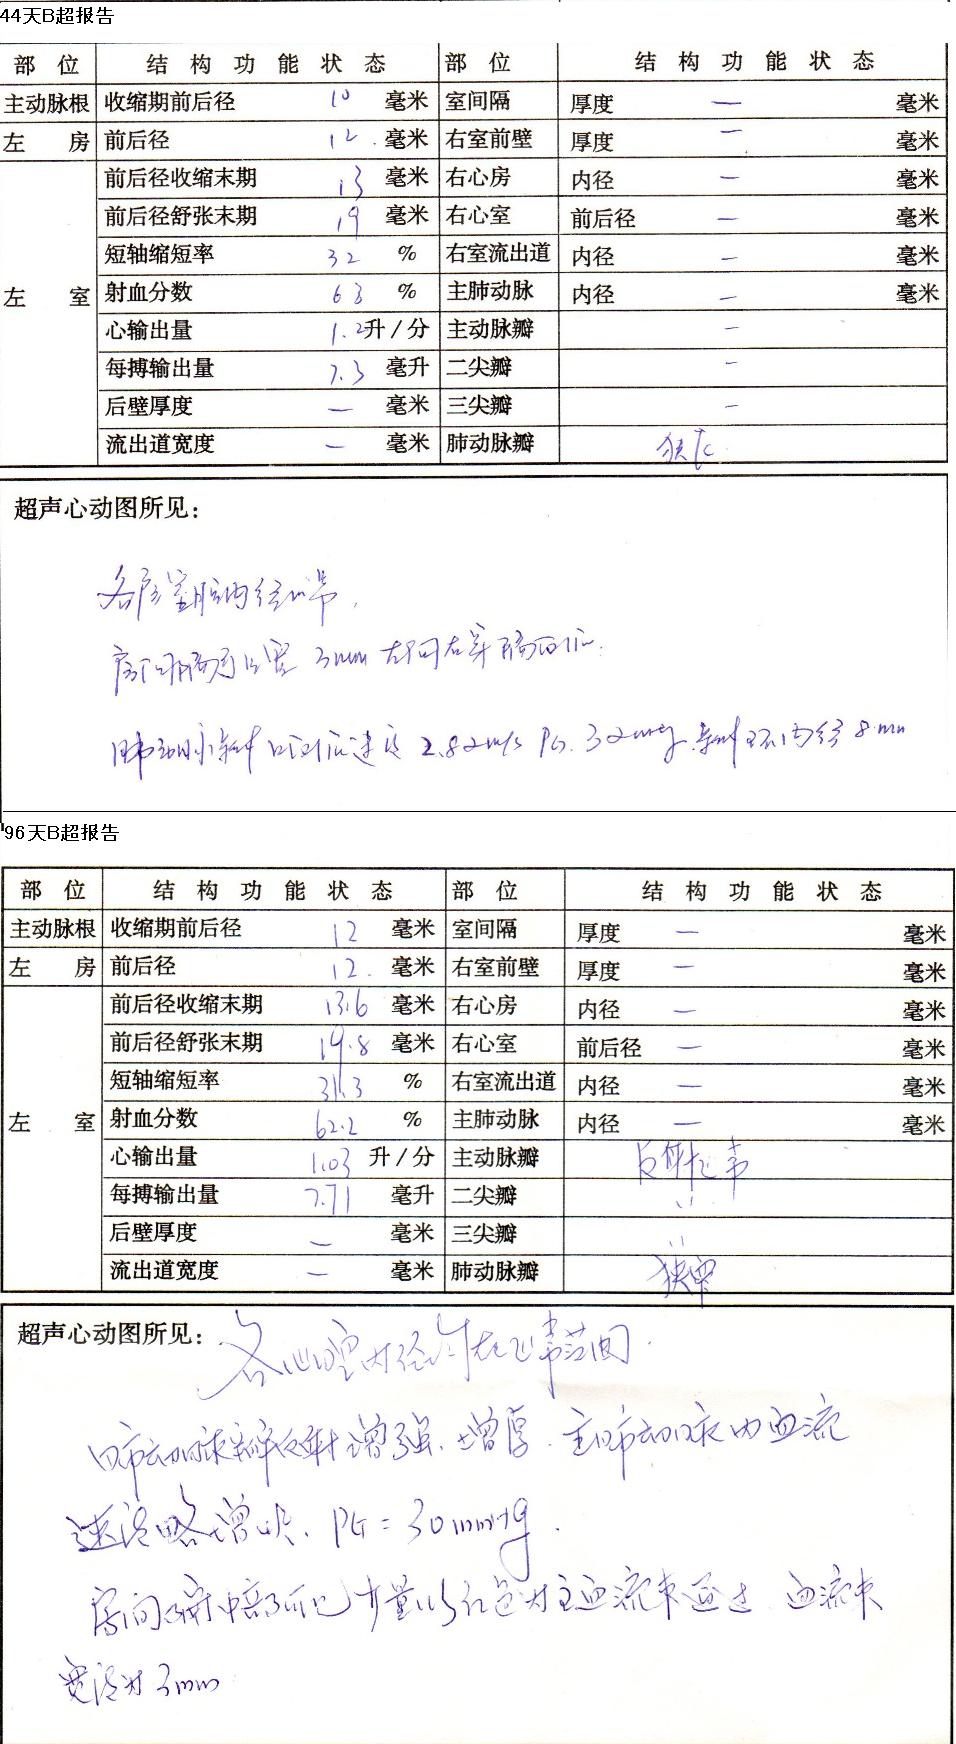 44天B超报告
部 位 结 构 功 能 状 态 部 位 结 构 功 能 状 态
主动脉根 收缩期前后径 10 毫米 室间隔 厚度 — 毫米
左 房 前后径 12 毫米 右室前壁 厚度 — 毫米
前后径收缩末期 13 毫米 右心房 内径 — 毫米
前后径舒张末期 19 毫米 右心室 前后径 — 毫米
短轴缩短率 32 % 右室流出道 内径 — 毫米
左 室 射血分数 63 % 主肺动脉 内径 — 毫米
心输出量 1.2 升/分 主动脉瓣 —
每搏输出量 7.3 毫升 二尖瓣 —
后壁厚度 — 毫米 三尖瓣 —
流出道宽度 — 毫米 肺动脉瓣
超声心动图所见:
各房室腔内径正常,
3mm
肺动脉瓣口血流速度 2.82m/s PG 32mmHg 瓣环内径 8mm
96天B超报告
部 位 结 构 功 能 状 态 部 位 结 构 功 能 状 态
主动脉根 收缩期前后径 12 毫米 室间隔 厚度 — 毫米
左 房 前后径 12 毫米 右室前壁 厚度 — 毫米
前后径收缩末期 13.6 毫米 右心房 内径 — 毫米
前后径舒张末期 19.8 毫米 右心室 前后径 — 毫米
短轴缩短率 31.3 % 右室流出道 内径 — 毫米
左 室 射血分数 62.2 % 主肺动脉 内径 — 毫米
心输出量 1.03 升/分 主动脉瓣 反射正常
每搏输出量 7.71 毫升 二尖瓣 〃
后壁厚度 — 毫米 三尖瓣 〃
流出道宽度 — 毫米 肺动脉瓣
超声心动图所见: 各心腔内径均在正常范围.
肺动脉瓣反射增强、增厚. 主肺动脉内血流
速度略增快、PG=30mmHg.
房间隔中部可见少量以红色为主血流束通过. 血流束
宽度为3mm